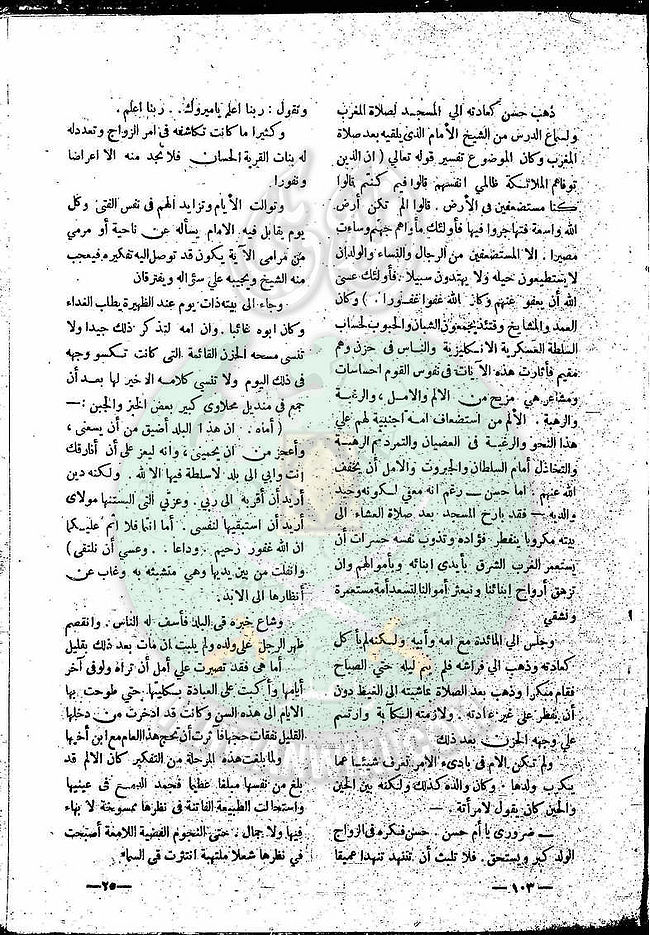 ذهب حسن كعادته الي المسجد لصلاة المغرب
ولسماع الدرس من الشيخ الأمام الذى يلقيه بعد صلاة
المغرب وكان الموضوع تفسير قوله تعالي ( ان الذين
توفاهم الملائكة ظالمي انفسهم قالوا فيم كنتم قالوا
كنا مستضعفين فى الأرض . قالوا الم تكن أرض
الله واسعة فتهاجروا فيها فأولئك مأواهم جهنم وساءت
مصيرا . الا المستضعفين من الرجال والنساء والولدان
لا يستطيعون حيله ولا يهتدون سبيلا . فأولئك عسى
الله أن يعفو عنهم وكان الله غفوا غفورا . ) وكان
العمد والمشايخ وقتئذ يجمعون الشبان والحبوب لحساب
السلطة العسكرية الانكليزية والناس فى حزن وهم
مقيم فأثارت هذه الآيات فى نفوس القوم احساسات
ومشاعر هي مزيج من الالم والامل ، والرغبة
والرهبة . الألم من استضعاف امة أجنبية لهم علي
هذا النحو والرغبة فى العصيان والتمرد ثم الرهبة
والتخاذل أمام السلطان والجبروت والامل أن يخفف
الله عنهم . اما حسن — رغم انه معفي لكونه وحيد
والديه — فقد بارح المسجد بعد صلاة العشاء الى
بيته مكروبا ينفطر فؤاده وتذوب نفسه حسرات أن
يستعمر الغرب الشرق بأيدى ابنائه وبأموالهم وان
تزهق أرواح ابنائنا وتبعثر أموالنا لتسعد أمة مستعمرة
ونشقي
وجلس الى المائدة مع امه وأبيه ولكنه لم يأكل
كعادته وذهب الي فراشه فلم ينم ليله حتي الصباح
فقام مبكرا وذهب بعد الصلاة بماشيته الى الغيط دون
أن يفطر علي غير عادته . ولازمته الكآبة وارتسم
علي وجهه الحزن بعد ذلك
ولم تكن الام فى بادىء الامر تعرف شيئا عما
يكرب ولدها . وكان والده كذلك ولكنه بين الحين
والحين كان يقول لامرأته . —
— ضرورى يا أم حسن . حسن فكره فى الزواج
الولد كبر ويستحق . فلا تلبث أن تتنهد تنهدا عميقا
— ١٠٣ —
وتقول : ربنا أعلم يا مبروك . . ربنا اعلم .
وكثيرا ما كانت تكاشفه فى امر الزواج وتعدد له
له بنات القرية الحسان فلا تجد منه الا اعراضا
ونفورا
وتوالت الأيام وتزايد الهم فى نفس الفتى وكل
يوم يقابل فيه الامام يسأله عن ناحية أو مرمي
من مرامى الآية يكون قد توصل اليه تفكيره فيعجب
منه الشيخ ويجيبه علي سؤاله ويفترقان
وجاء الى بيته ذات يوم عند الظهيرة يطلب الغداء
وكان ابوه غائبا وان امه لتذكر ذلك جيدا ولا
تنسى مسحه الحزن القائمة التى كانت تكسو وجهه
فى ذلك اليوم ولا تنسى كلامه الاخير لها بعد أن
جمع فى منديل محلاوى كبير بعض الخبز والجبن : —
( أماه . ان هذا البلد أضيق من أن يسعنى ،
وأعجز من ان يحمينى ، وانه ليعز على أن أفارقك
انت وابي الى بلد لا سلطة فيها الا لله . ولكنه دين
أريد أن أقربه الى ربي . وعزتي التى البستنيها مولاى
أريد أن استبقيها لنفسى . أما انتما فلا اثم عليكما
ان الله غفور رحيم . وداعا . . وعسي أن نلتقى )
وانفلت من بين يديها وهي متشبثه به وغاب عن
أنظارها الى الابد .
وشاع خبره فى البلد فأسف له الناس . وانقصم
ظهر الرجل على ولده ولم يلبث ان مات بعد ذلك بقليل
أما هى فقد تصبرت علي أمل أن تراه ولو فى آخر
أيامها وأكبت على العبادة بسكليتها حتي طوحت بها
الايام الى هذه السن وكانت قد ادخرت من دخلها
القليل نفقات حجها فآثرت أن تحج هذا العام مع ابن أخيها
ولما بلغت هذه المرحلة من التفكير كان الالم قد
بلغ من نفسها مبلغا عظيما فتجمد الدمع فى عينيها
واستحالت الطبيعة الفاتنة فى نظرها ممسوخة لا بهاء
فيها ولا جمال ، حتى النجوم الفضية اللامعة أصبحت
في نظرها شعلا ملتهبة انتثرت فى السماء
— ٢٥ —